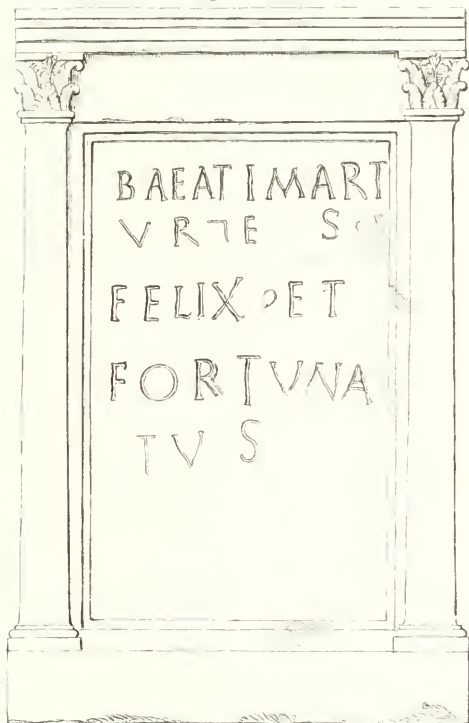 BAEATIMART
VRE S
FELIX ET
FORTVNA
TVS